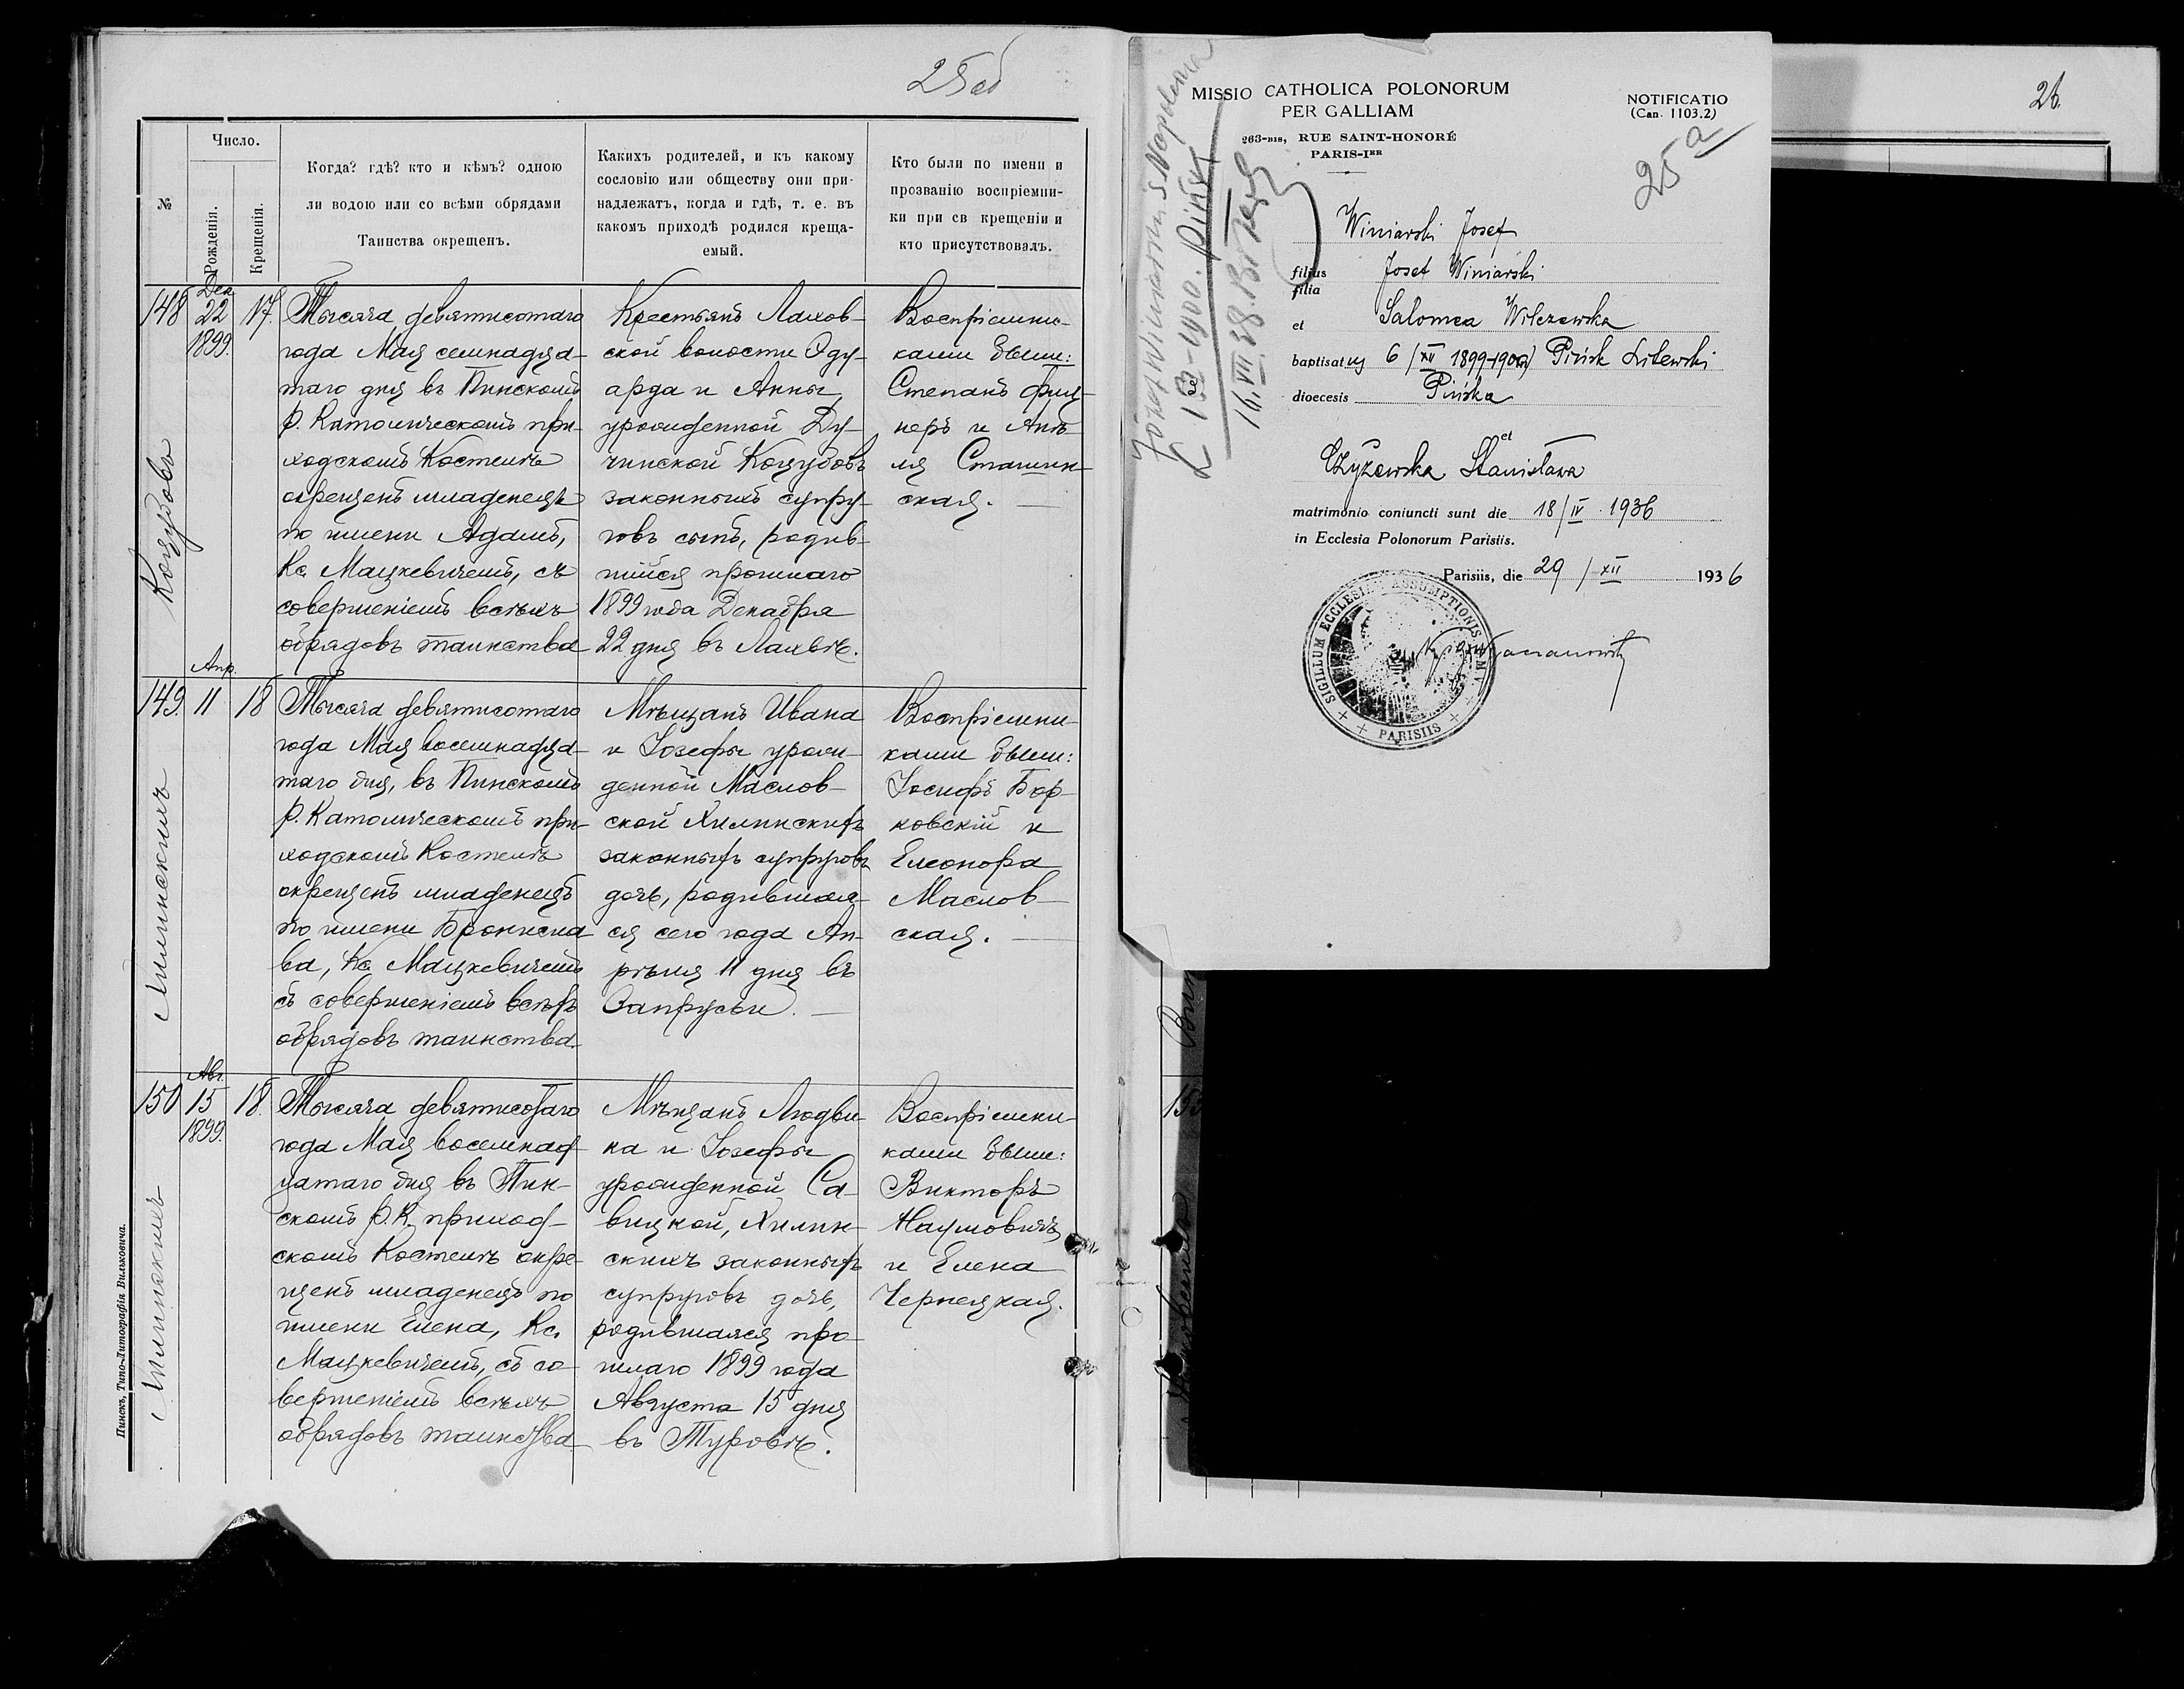 25 об
№
Число.
Рожденія.
Крещенія.
Когда? гдѣ? кто и кѣмъ? одною
ли водою или со всѣми обрядами
Таинства окрещенъ.
Какихъ родителей, и къ какому
сословію или обществу они при-
надлежатъ, когда и гдѣ, т. е. въ
какомъ приходѣ родился креща-
емый.
Кто были по имени и
прозванію воспріемни-
ки при св крещеніи и
кто присутствовалъ.
148
Дек
22
1899.
17.
Тысяча девятисотаго
года Мая семнадца-
таго дня въ Пинскомъ
Р. Католическомъ при-
ходскомъ Костелѣ
окрещенъ младенецъ
по имени Адамъ,
Кс. Мацкевичемъ, съ
совершеніемъ всѣхъ
обрядовъ таинства
Крестьянъ Лахов-
ской волости Эду-
арда и Анны
урожденной Ду-
чинской Коцубовъ
законныхъ супру-
говъ сынъ, родив-
шійся прошлаго
1899 года Декабря
22 дня въ Лахвѣ.
Воспріемни-
ками были:
Степанъ Фиц-
неръ и Анѣ-
ля Сташин-
ская.
Коцубовъ
149.
Апр.
11
18
Тысяча девятисотаго
года Мая восемнадца-
таго дня, въ Пинскомъ
Р. Католическомъ при-
ходскомъ Костелѣ
окрещенъ младенецъ
по имени Бронисла
ва, Кс. Мацкевичемъ
съ совершеніемъ всѣхъ
обрядовъ таинства.
Мѣщанъ Ивана
и Іозефы урож-
денной Маслов-
ской Хилинскихъ
законныхъ супруговъ
дочь, родившая-
ся сего года Ап-
рѣля 11 дня въ
Запрусьи.
Воспріемни-
ками были:
Іосифъ Бор-
ковскій и
Елеонора
Маслов-
ская.
Хилинскихъ
150
Авг.
15
1899.
18.
Тысяча девятисотаго
года Мая восемнад-
цатаго дня въ Пин-
скомъ Р. К. приход-
скомъ Костелѣ окре-
щенъ младенецъ по
имени Елена, Кс.
Мацкевичемъ, съ со-
вершеніемъ всѣхъ
обрядовъ таинства
Мѣщанъ Людви-
ка и Іозефы
урожденной Са-
вицкой, Хилин-
скихъ законныхъ
супруговъ дочь,
родившаяся про-
шлаго 1899 года
Августа 15 дня
въ Туровѣ.
Воспріемни-
ками были:
Викторъ
Наумовичъ
и Елена
Чернецкая.
Хилинскихъ
Пинскъ, Типо-Литографія Вильковича.
MISSIO CATHOLICA POLONORUM
PER GALLIAM
263-BIS, RUE SAINT-HONORÉ
PARIS-IER
NOTIFICATIO
(Can. 1103.2)
25 a
Winiarski Josef
filius
filia
Josef Winiarski
et Salomea Wilczewska
baptisatus 6/XII 1899-1900 Pińsk Litewski
dioecesis Pińska
et
Czyżewska Stanisława
matrimonio coniuncti sunt die 18/IV. 1936
in Ecclesia Polonorum Parisiis.
Parisiis, die 29/XII 1936
SIGILLUM ECCLESIAE ASSUMPTIONIS B.M.V.
PARISIIS
16.VII 38.
26.